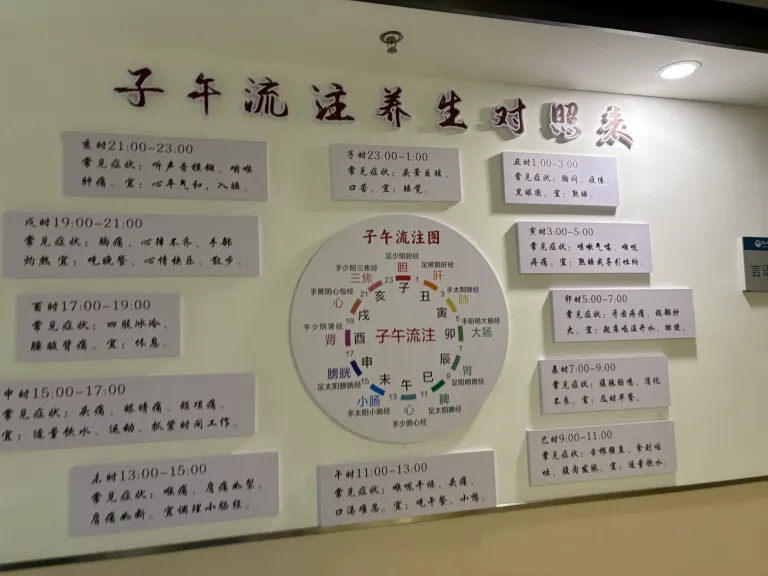 子午流注养生对照表
亥时21:00-23:00
常见症状：听声音模糊、咽喉
肿痛。宜：心平气和，入睡。
子时23:00-1:00
常见症状：头晕目眩、
口苦。宜：睡觉。
丑时1:00-3:00
常见症状：胸闷、疲倦、
黑眼圈。宜：熟睡。
戌时19:00-21:00
常见症状：胸痛、心律不齐、手部
灼热 宜：吃晚餐、心情快乐、散步。
寅时3:00-5:00
常见症状：咳嗽气喘、喉咙
疼痛。宜：熟睡或导引吐纳。
酉时17:00-19:00
常见症状：四肢冰冷、
腰酸背痛。宜：休息。
卯时5:00-7:00
常见症状：牙齿疼痛、颈部肿
大。宜：起床喝温开水、排便。
申时15:00-17:00
常见症状：头痛、眼睛痛、颈项痛。
宜：适量饮水、运动、抓紧时间工作。
辰时7:00-9:00
常见症状：腹胀肠鸣、消化
不良。宜：及时早餐。
未时13:00-15:00
常见症状：喉痛、肩痛如裂、
肩痛如断。宜调理小肠经。
午时11:00-13:00
常见症状：喉咙干燥、头痛、
口渴难忍。宜：吃午餐、小憩。
巳时9:00-11:00
常见症状：舌根强直、食则呕
吐、腹闷发胀。宜：适量饮水。
子午流注图
足少阳胆经
胆
足厥阴肝经
肝
手太阴肺经
肺
手阳明大肠经
大肠
足阳明胃经
胃
足太阴脾经
脾
手少阴心经
心
手太阳小肠经
小肠
足太阳膀胱经
膀胱
手少阴肾经
肾
手厥阴心包经
心
手少阳三焦经
三焦
23 1 3 5 7 9 11 13 15 17 19 21
子 丑 寅 卯 辰 巳 午 未 申 酉 戌 亥
子午流注
言语